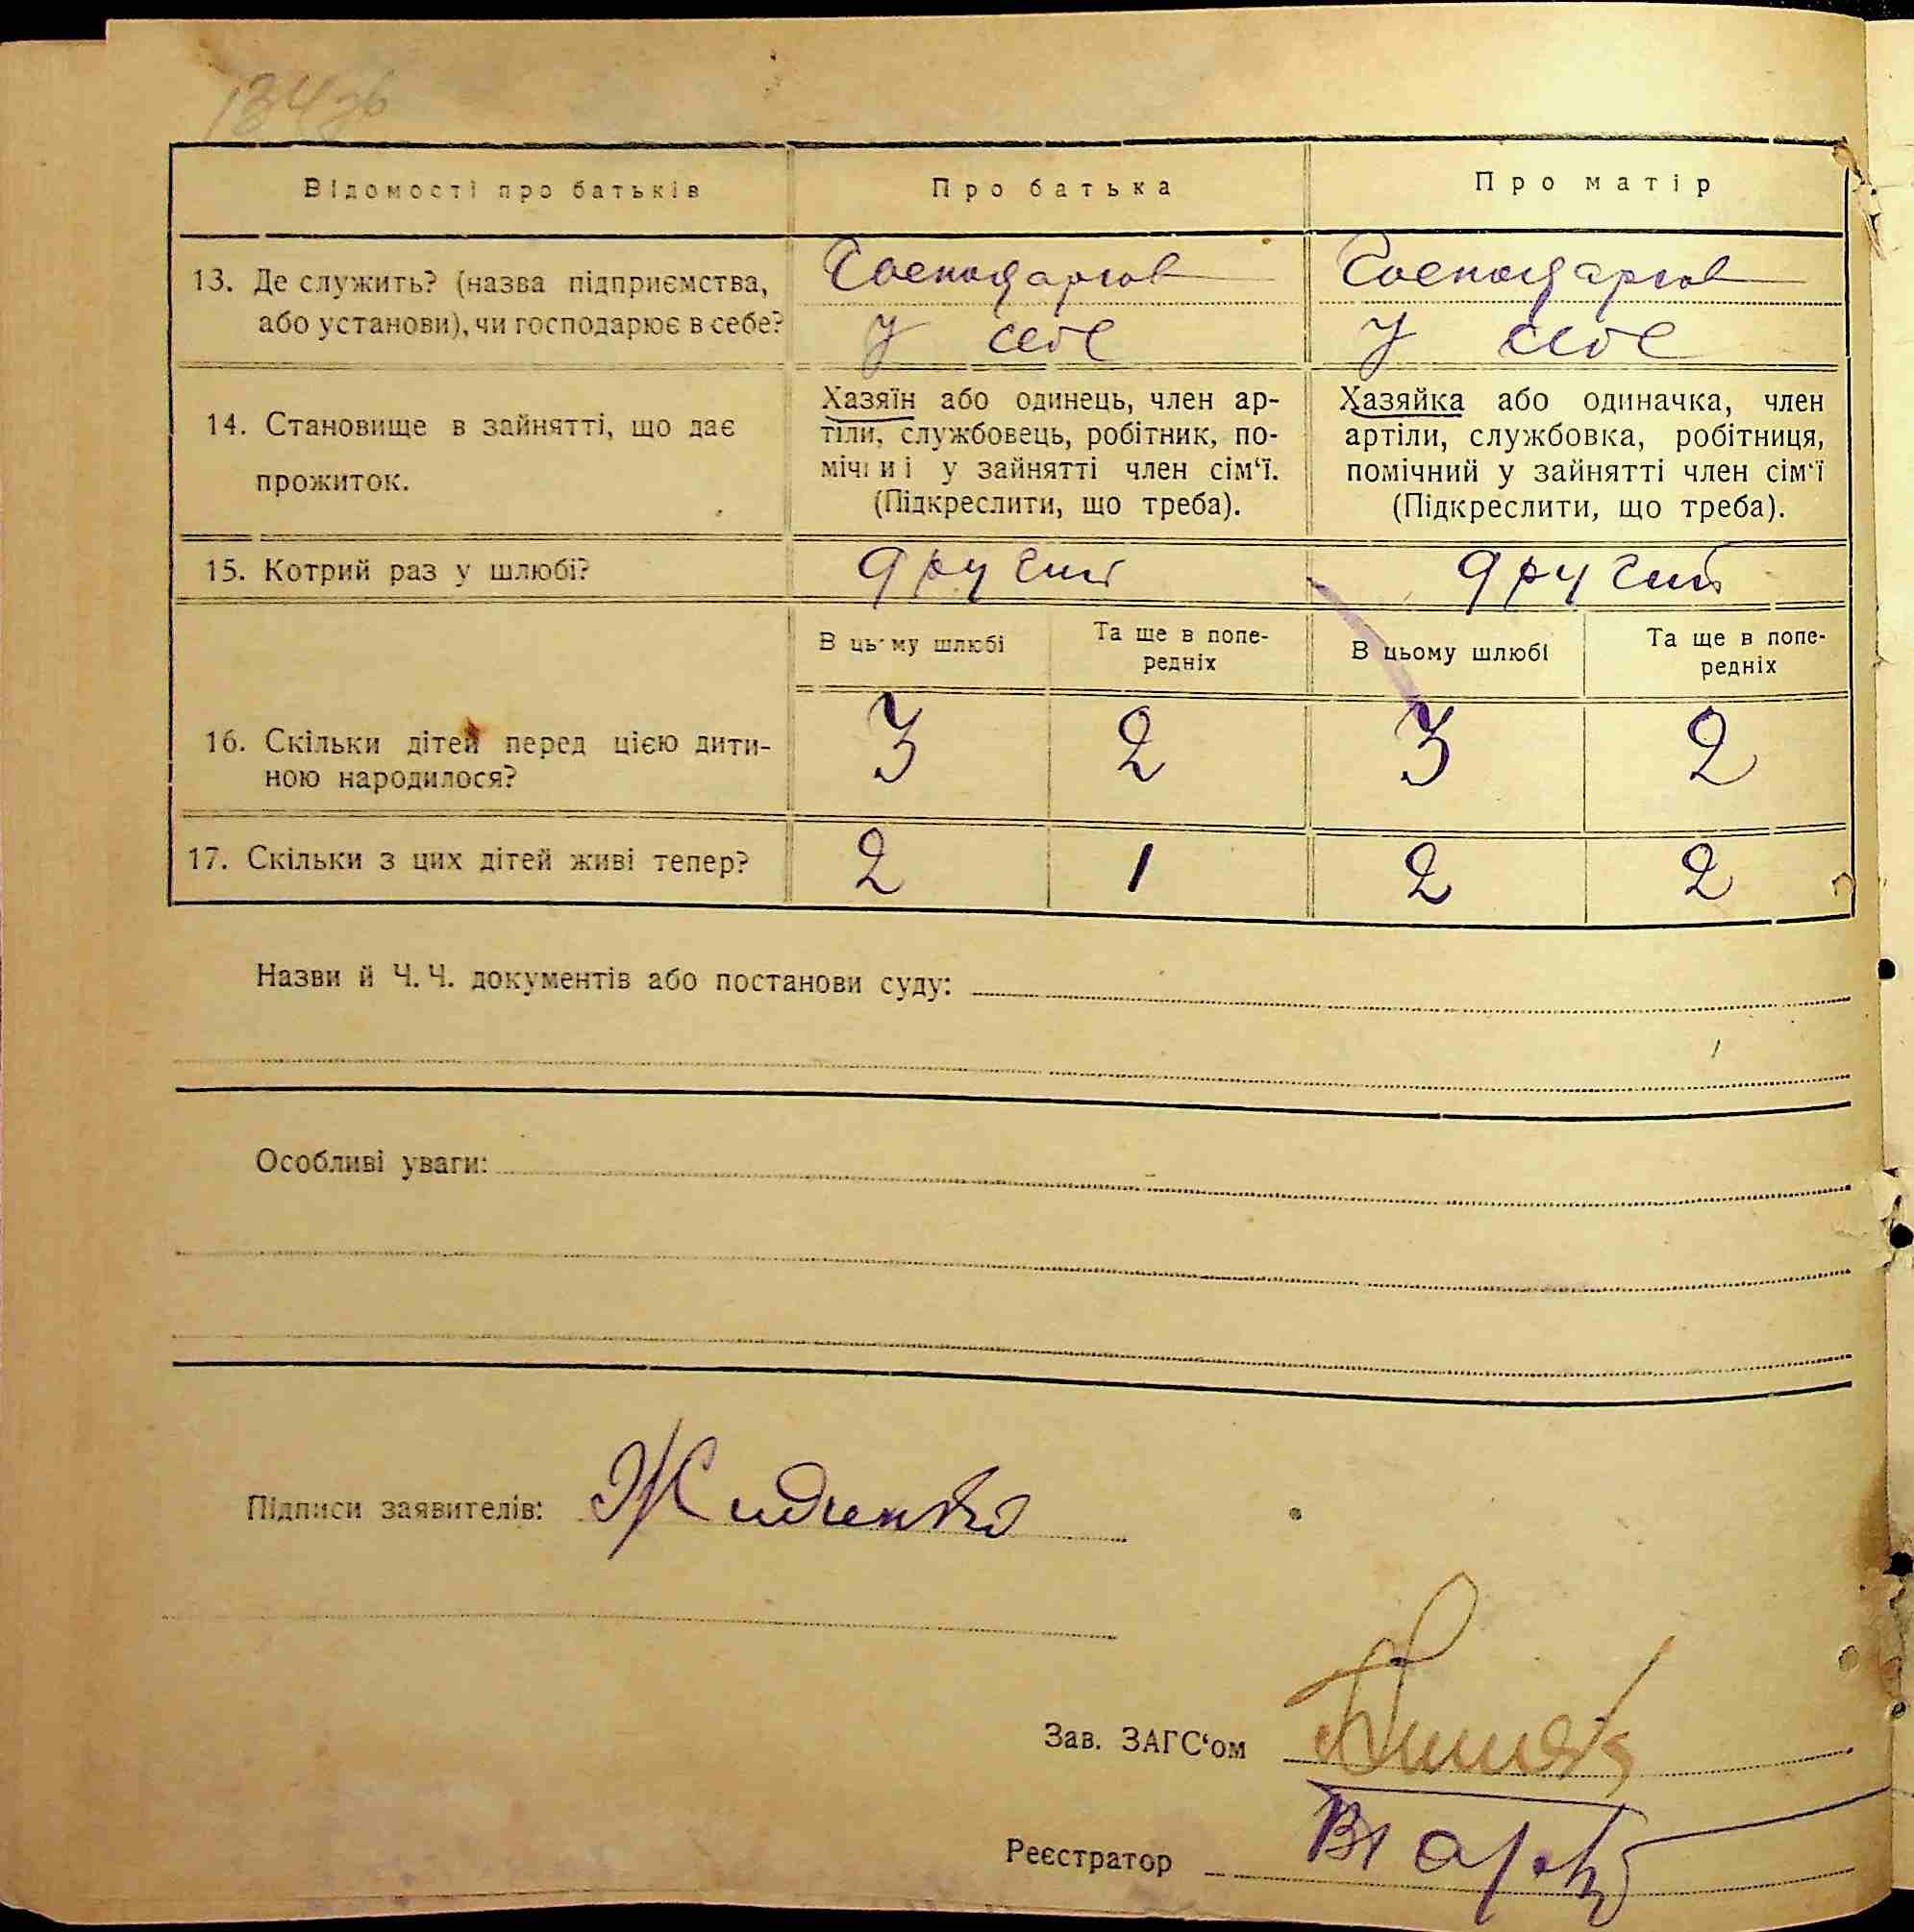 134зв
Відомості про батьків
Про батька
Про матір
13. Де служить? (назва підприємства,
або установи), чи господарює в себе?
Господарює
у себе
Господарює
у себе
14. Становище в зайнятті, що дає
прожиток.
Хазяїн або одинець, член ар-
тіли, службовець, робітник, по-
мічниі у зайнятті член сім‘ї.
(Підкреслити, що треба).
Хазяйка або одиначка, член
артіли, службовка, робітниця,
помічний у зайнятті член сім‘ї
(Підкреслити, що треба).
15. Котрий раз у шлюбі?
другий
другий
В цьому шлюбі
Та ще в попе-
редніх
В цьому шлюбі
Та ще в попе-
редніх
16. Скільки дітей перед цією дити-
ною народилося?
3 2 3 2
17. Скільки з цих дітей живі тепер?
2 1 2 2
Назви й Ч. Ч. документів або постанови суду:
Особливі уваги:
Підписи заявителів: Жидченко
Зав. ЗАГС‘ом
Реєстратор